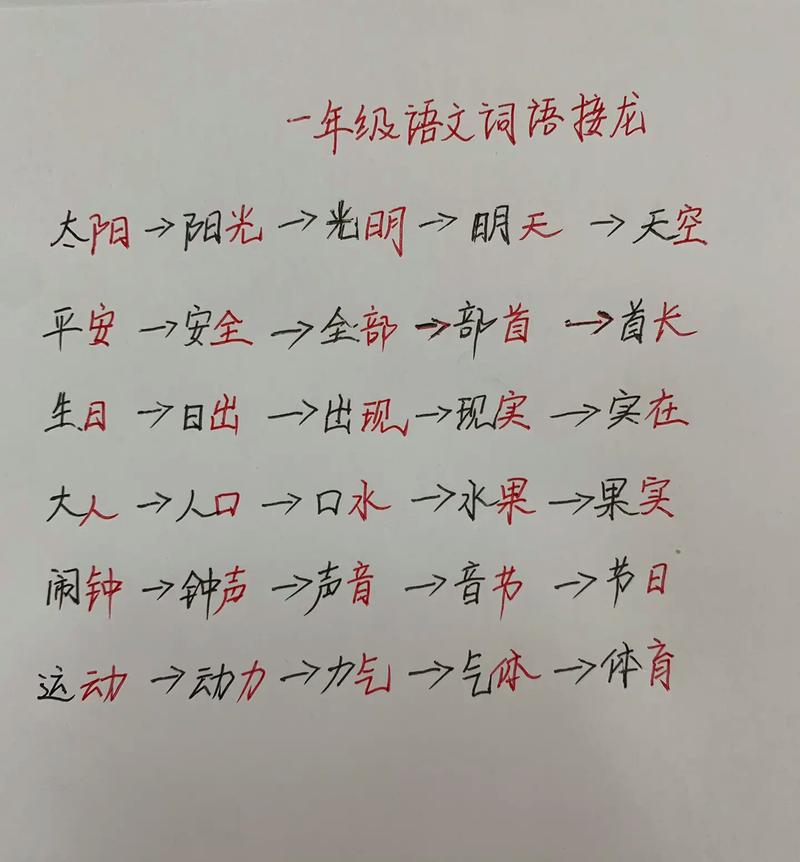 一年级语文词语接龙
太阳→阳光→光明→明天→天空
平安→安全→全部→部首→首长
生日→日出→出现→现实→实在
大人→人口→口水→水果→果实
闹钟→钟声→声音→音节→节日
运动→动力→力气→气体→体育